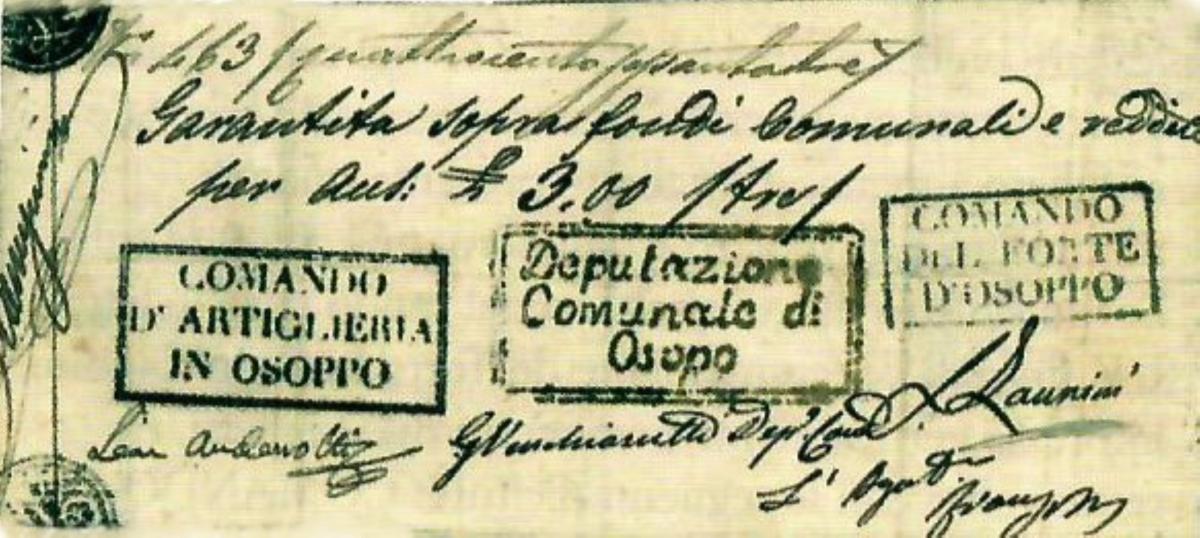 No 463 / quattrocento sessantatre /
Garantita sopra fondi Comunali e redditi
per Aust: £ 3.00 / tre /
COMANDO
D' ARTIGLIERIA
IN OSOPPO
Deputazione
Comunale di
Osopo
COMANDO
DEL FORTE
D'OSOPPO
Leon Andervolti
Dep. Com.
L' Agte